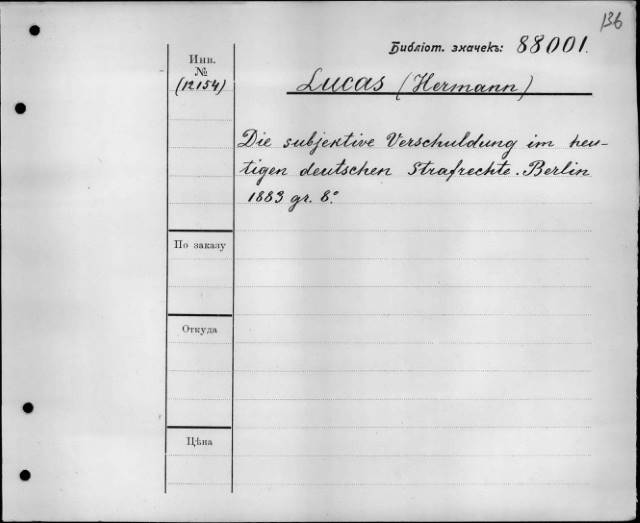 136
Библіот. значекъ: 88001.
Инв.
№
(12154)
Lucas (Hermann)
Die subjektive Verschuldung im heu-
tigen deutschen Strafrechte. Berlin
1883 gr. 8°.
По заказу
Откуда
Цѣна